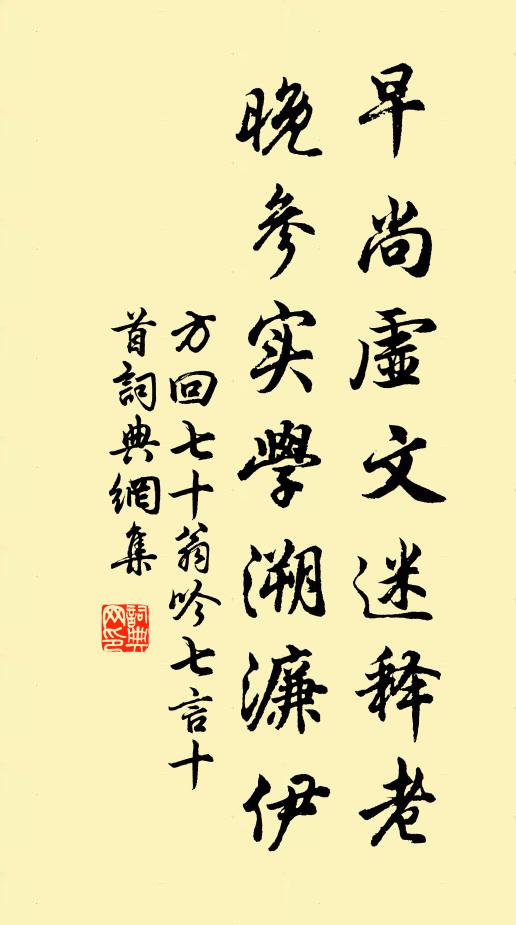 早尚虛文迷释老
晚參实學溯濂伊
方回七十翁吟七言十
首詞典網集
詞典网印